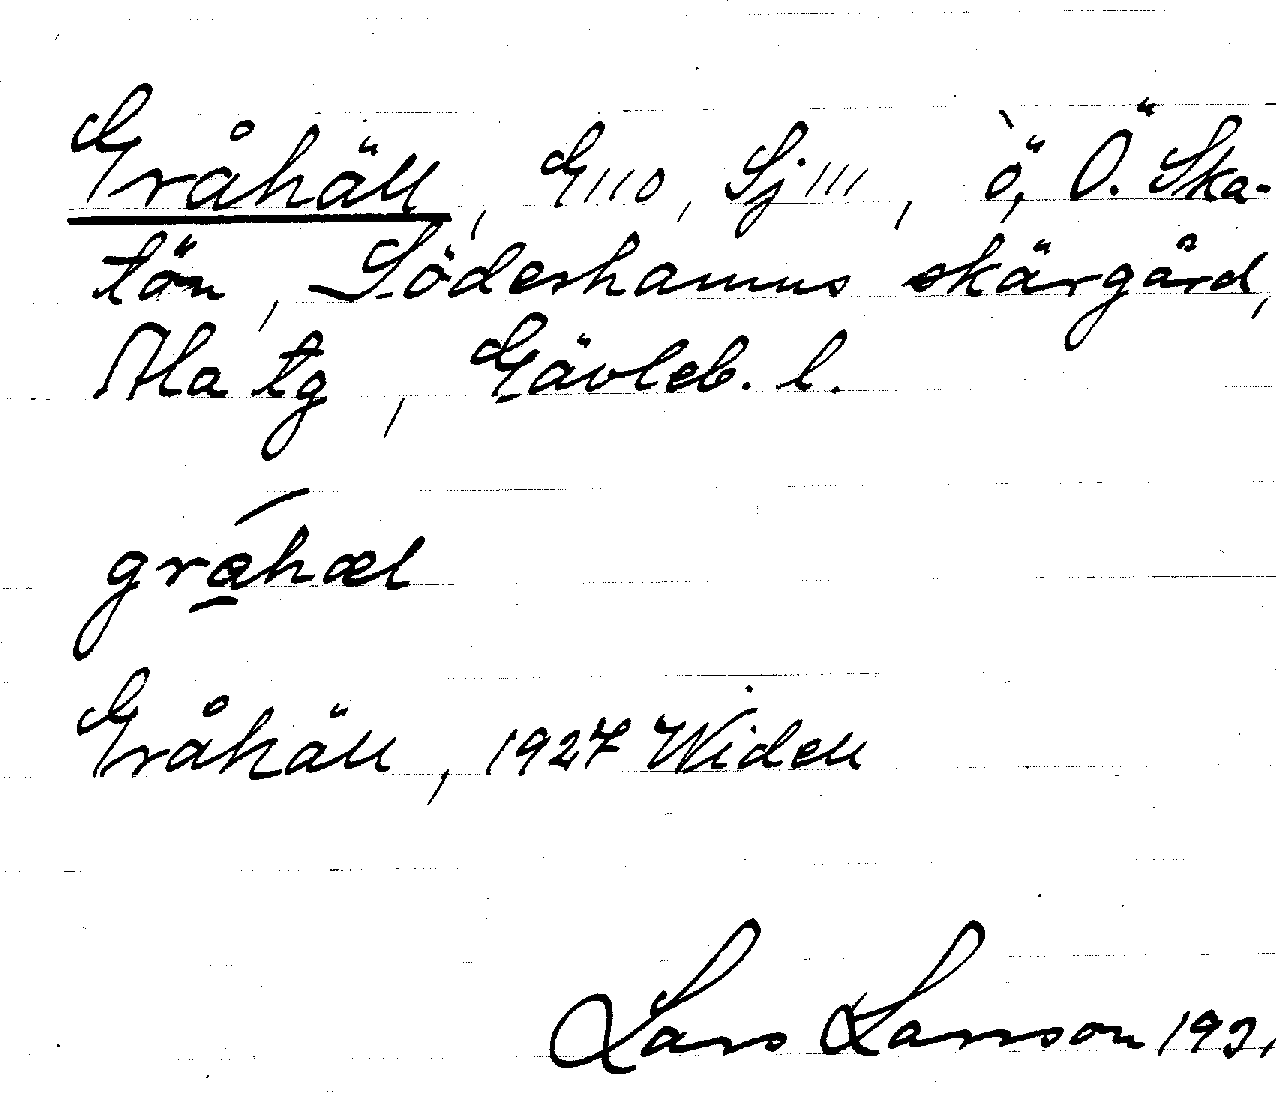 Gråhäll, G110, Sj111, ö, Ö. Ska-
tön, Söderhamns skärgård,
Ala tg, Gävleb. l.
gråhæl
Gråhäll, 1927 Widell
Lars Larsson 193